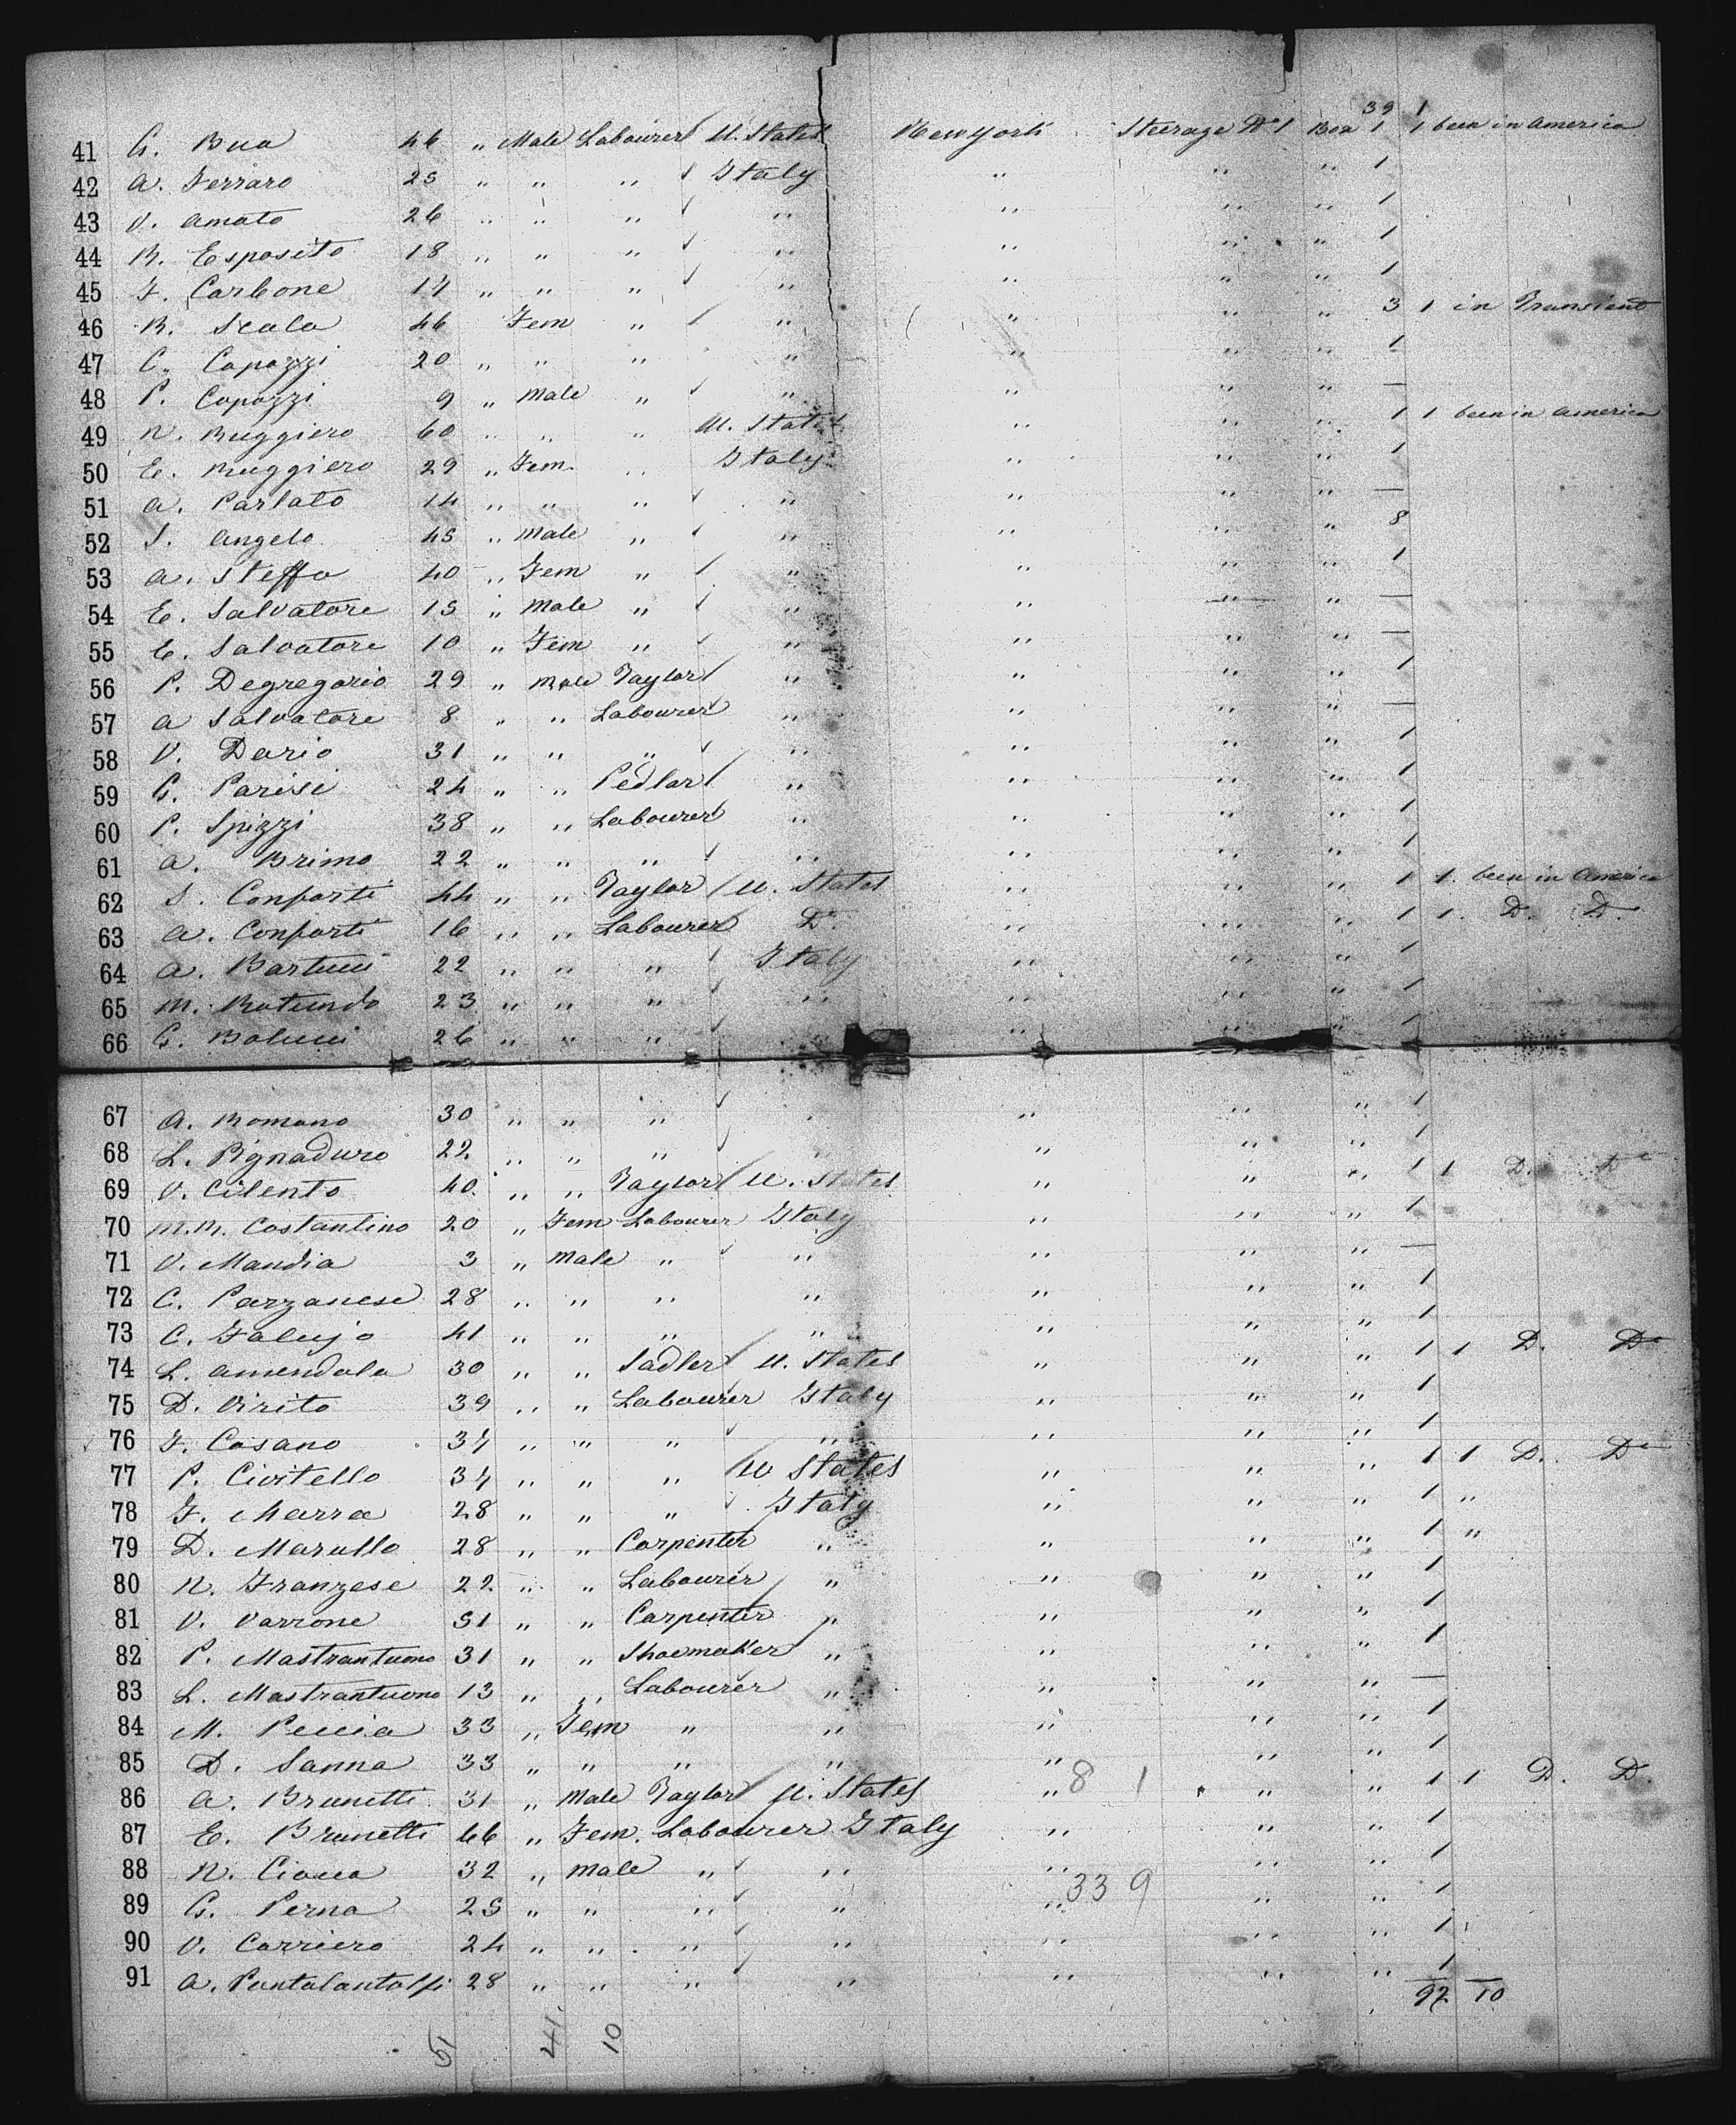 39 1
41 G. Bua 46 " Male Labourer U. States New York Steerage No 1 Box 1 1 been in America
42 A. Ferraro 25 " " " Italy " " " 1
43 V. Amato 26 " " " " " " " 1
44 R. Esposito 18 " " " " " " " 1
45 F. Carbone 17 " " " " " " " 1
46 R. Scala 46 Fem " " " " " 3 1 in Transient
47 C. Capozzi 20 " " " " " " " 1
48 P. Capozzi 9 " Male " " " " " —
49 N. Ruggiero 60 " " " U. States " " " 1 1 been in America
50 E. Ruggiero 29 " Fem. " Italy " " " 1
51 A. Parlato 14 " " " " " " " —
52 S. Angelo 45 " Male " " " " " 8
53 A. Steffo 40 " Fem " " " " " 1
54 E. Salvatore 15 " Male " " " " " —
55 E. Salvatore 10 " Fem " " " " " —
56 P. Degregorio 29 " Male Taylor " " " " 1
57 A Salvatore 8 " " Labourer " " " " —
58 V. Dario 31 " " " " " " " 1
59 G. Parisi 24 " " Pedlar " " " " 1
60 P. Spizzi 38 " " Labourer " " " " 1
61 A. Brimo 22 " " " " " " " 1
62 S. Conforti 44 " " Taylor U. States " " " 1 1 been in America
63 A. Conforti 16 " " Labourer Do " " " 1 1 D. D.
64 A. Bartucci 22 " " " Italy " " " 1
65 M. Rotundo 23 " " " " " " " 1
66 G. 26 " " " " " " 1
67 A. Romano 30 " " " " " " " 1
68 L. Pignaduro 22 " " " " " " " 1
69 V. Cilento 40 " " Taylor U. States " " " 1 1 D. Do
70 M.M. Costantino 20 " Fem Labourer Italy " " " 1
71 V. Mandia 3 " Male " " " " " —
72 C. Parzanese 28 " " " " " " " 1
73 C. 41 " " " " " " " 1
74 L. Amendola 30 " " Sadler U. States " " " 1 1 D. Do
75 D. Virito 39 " " Labourer Italy " " " 1
76 F. Casano 37 " " " " " " " 1
77 P. Civitello 37 " " " U States " " " 1 1 D. Do
78 F. Marra 28 " " " Italy " " " 1 "
79 D. Marullo 28 " " Carpenter " " " " 1 "
80 N. Franzese 22 " " Labourer " " " " 1
81 V. Varrone 51 " " Carpenter " " " " 1
82 P. Mastrantuono 31 " " Shoemaker " " " " 1
83 L. Mastrantuono 13 " " Labourer " " " " —
84 M. Peccia 33 " Fem " " " " " 1
85 D. Sanna 33 " " " " " " " 1
86 A. Brunetti 31 " Male Taylor U. States " 8 1 " " 1 1 D. D.
87 E. Brunetti 46 " Fem. Labourer Italy " " " 1
88 N. Ciocca 32 " Male " " " " " 1
89 G. Perna 25 " " " " " 339 " " 1
90 V. Carriero 24 " " " " " " " 1
91 A. 28 " " " " " " " 1
97 10
51 41 10